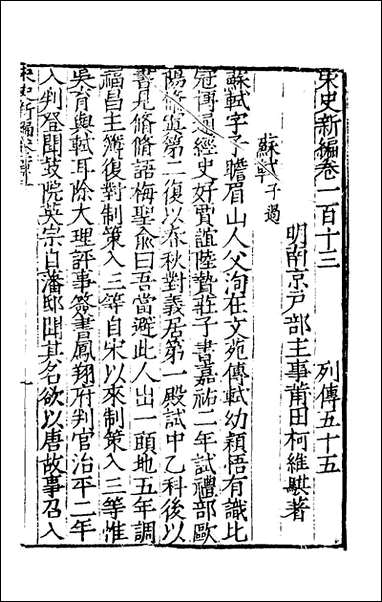 宋史新編卷一百十三　　列傳五十五
明南京戶部主事莆田柯維騏著
蘇軾　子過
蘇軾字子瞻眉山人父洵在文苑傳軾幼穎悟有識比
冠博通經史好賈誼陸贄莊子書嘉祐二年試禮部歐
陽脩寘第二復以春秋對義居第一殿試中乙科後以
書見脩脩語梅聖俞曰吾當避此人出一頭地五年調
福昌主簿復對制策入三等自宋以來制策入三等惟
吳育與軾耳除大理評事簽書鳳翔府判官治平二年
入判登聞鼓院英宗自藩邸聞其名欲以唐故事召入
宋史新編卷